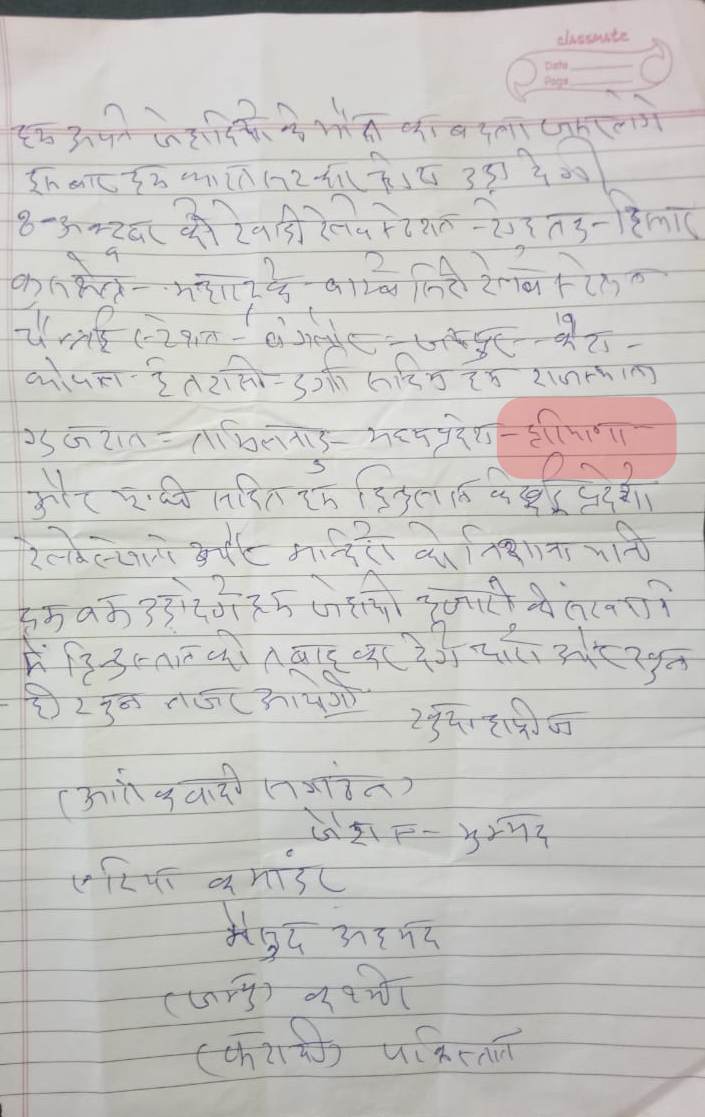 classmate
Date
Page
हम अपने जेहादियो के मौत का बदला जरूर लेगे
इस बार हम भारत सरकार को उड़ा देगे
8-अक्टूबर को रेवाडी रेलवे स्टेशन - रोहतक - हिसार
कुरुक्षेत्र - बाम्बे सिटी रेलवे स्टेशन
चैन्नई स्टेशन - बंगलौर - जयपुर -
भोपाल - ईटारसी - सहित हम राजस्थान
गुजरात - तामिलनाडु - मध्यप्रदेश - हरियाणा -
और यूपी सहित हम हिन्दुस्तान के कई प्रदेशो
रेलवे स्टेशनो और मन्दिरो को निशाना
बम उड़ा देगे हम जेहादी हजारो की संख्या
में हिन्दुस्तान को तबाह कर देगे चारो ओर खुन
ही खुन नजर आयेगा
खुदा हाफीज
(आतंकवादी संगठन)
जैश - मुहम्मद
एरिया कमांडर
अहमद
(जम्मु) कश्मीर
(कराची) पाकिस्तान